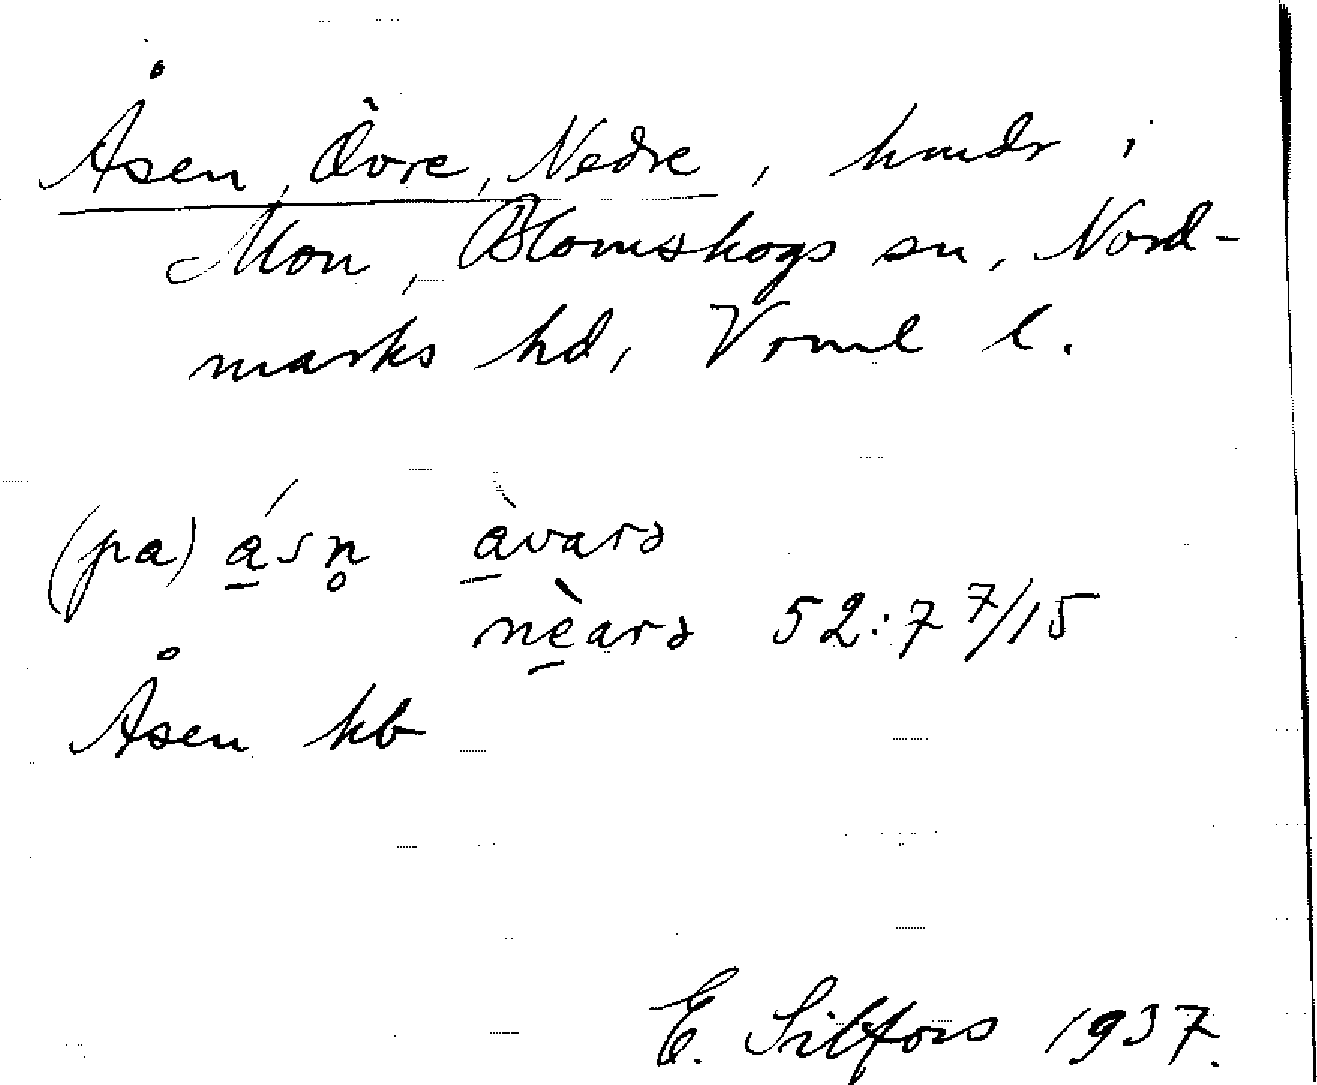 Åsen, Övre, Nedre, hmdr i
Mon, Blomskogs sn, Nord-
marks hd, Vrml l.
(pa) á̲sn̥ à̲varə
nè̲arə 52:7 7/15
Åsen kb
E. Sibfors 1937.